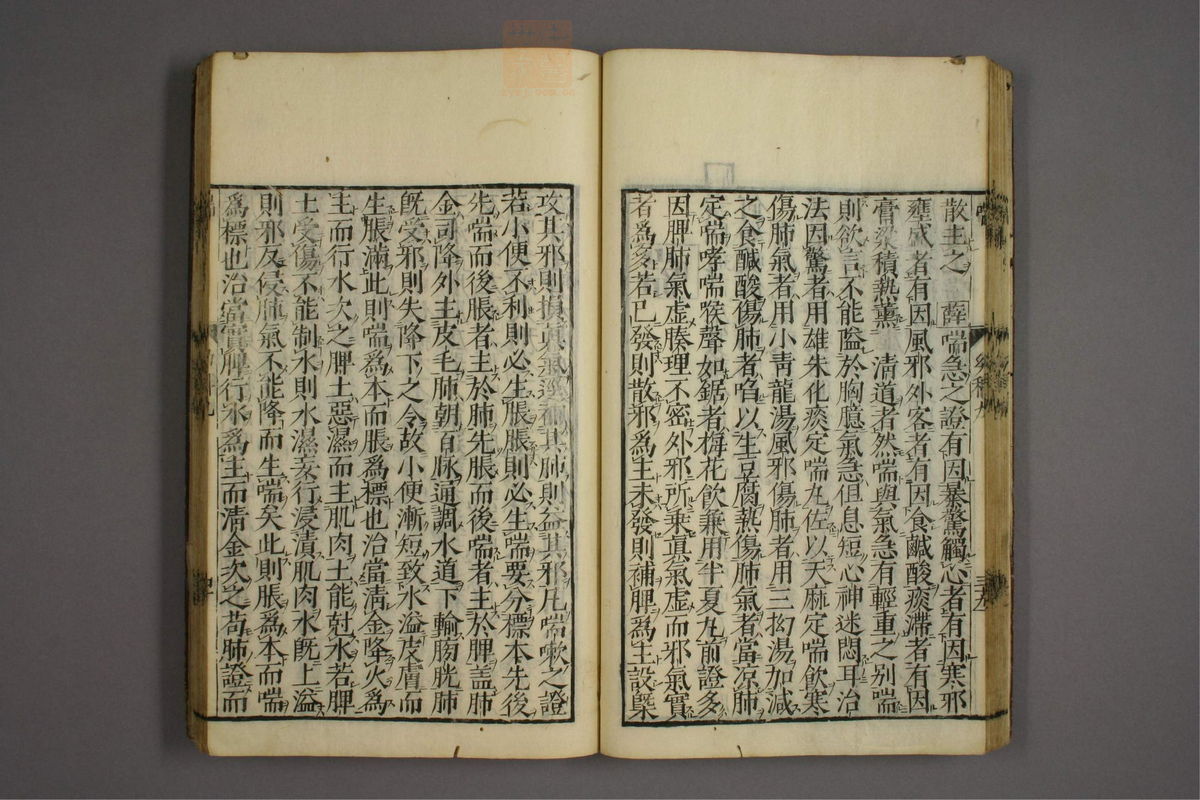 散主之 薛喘急之證有因暴驚觸心者有因寒邪
壅盛者有因風邪外客者有因食鹹酸痰滯者有因
膏粱積熱薰 清道者然喘與氣急有輕重之别喘
則欲言不能隘於胸臆氣急但息短心神迷悶耳治
法因驚者用雄朱化痰定喘丸佐以天麻定喘飲寒
傷肺氣者用小青龍湯風邪傷肺者用三拗湯加減
之食鹹酸傷肺者啗以生豆腐熱傷肺氣者當凉肺
定喘哮喘喉聲如鋸者梅花飲兼用半夏丸前證多
因脾肺氣虛腠理不密外邪所乗眞氣虛而邪氣實
者為多若已發則散邪為主未發則補脾為主設槩
攻其邪則損眞氣逕補其肺則益其邪凡喘嗽之證
若小便不利則必生脹脹則必生喘要分標本先後
先喘而後脹者主於肺先脹而後喘者主於脾盖肺
金司降外主皮毛肺朝百脉通調水道下輸膀胱肺
既受邪則失降下之令故小便漸短致水溢皮膚而
生脹滿此則喘爲本而脹爲標也治當清金降火爲
主而行水次之脾土惡濕而主肌肉土能尅水若脾
土受傷不能制水則水濕妄行浸漬肌肉水既上溢
則邪反侵肺氣不能降而生喘矣此則脹爲本而喘
爲標也治當實脾行水爲主而清金次之苟肺證而